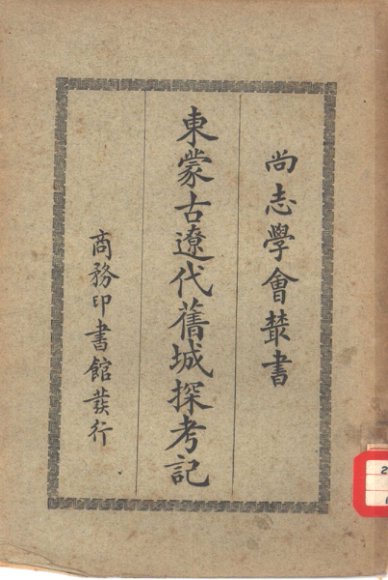 尚志學會叢書
東蒙古遼代舊城探考記
商務印書館發行